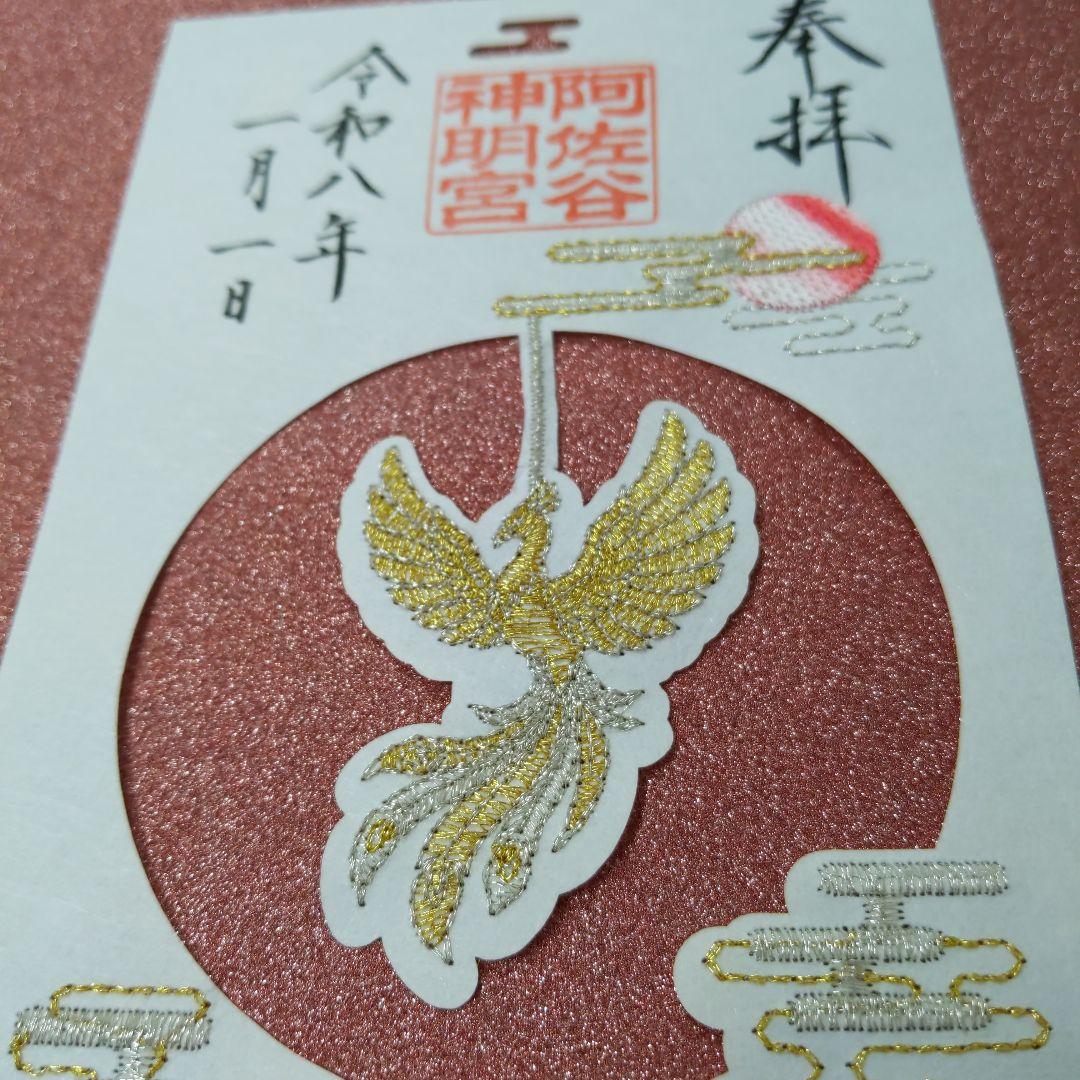 奉拝
阿佐谷
神明宮
令和八年
一月一日